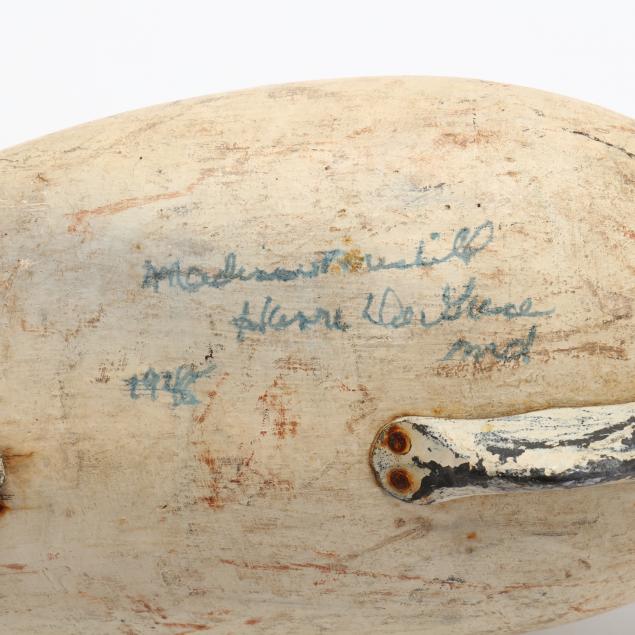 Madison Mitchell
Havre De Grace
md